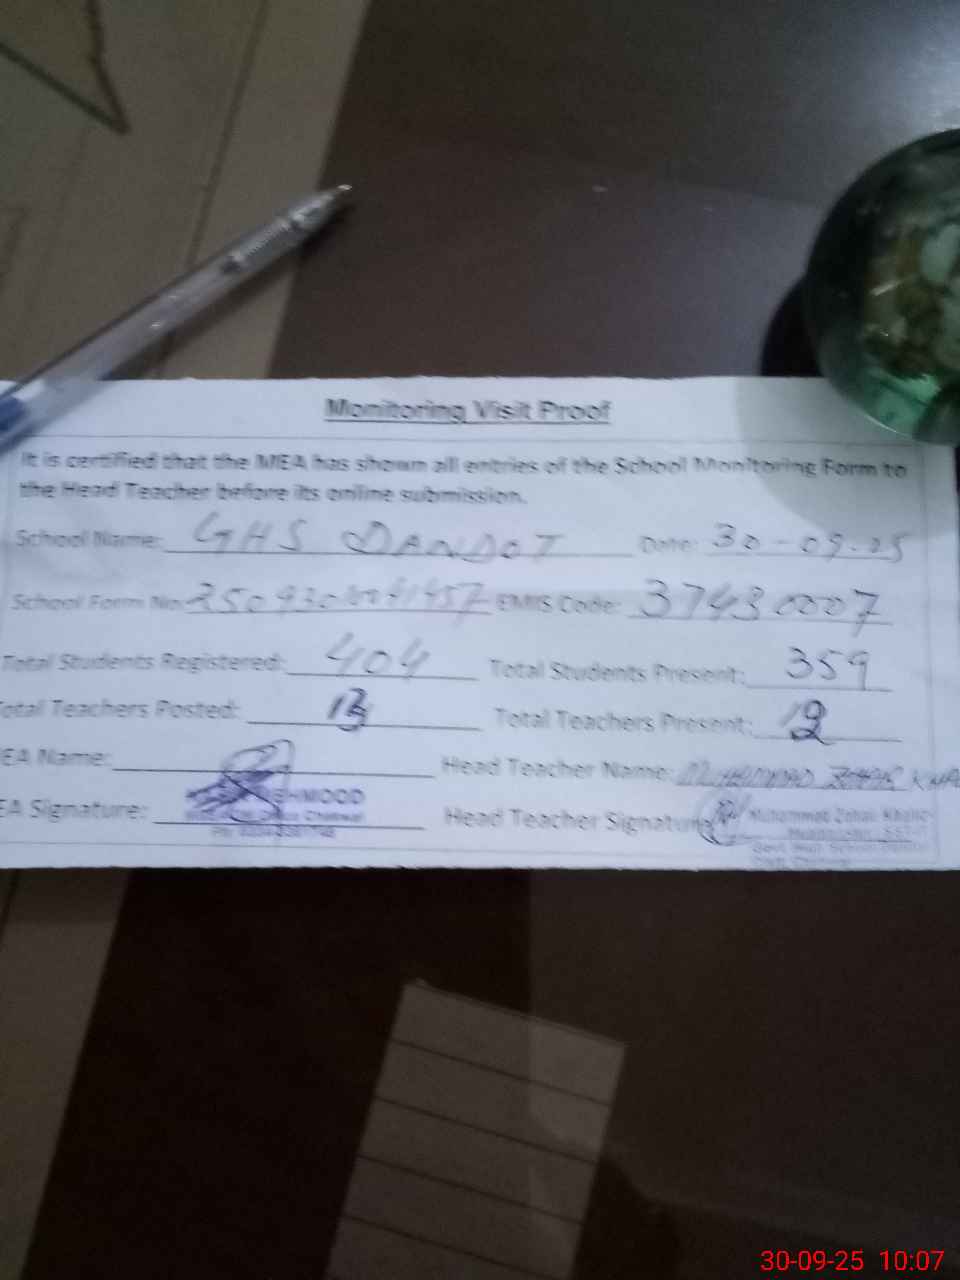 Monitoring Visit Proof
It is certified that the MEA has shown all entries of the School Monitoring Form to
the Head Teacher before its online submission.
School Name: GHS DANDOT Date: 30-09-25
School Form No: EMIS Code: 37430007
Total Students Registered: 404 Total Students Present: 359
Total Teachers Posted: 13 Total Teachers Present: 12
EA Name: Head Teacher Name: MUHAMMAD
EA Signature: HMOOD Head Teacher Signature Muhammad
30-09-25 10:07